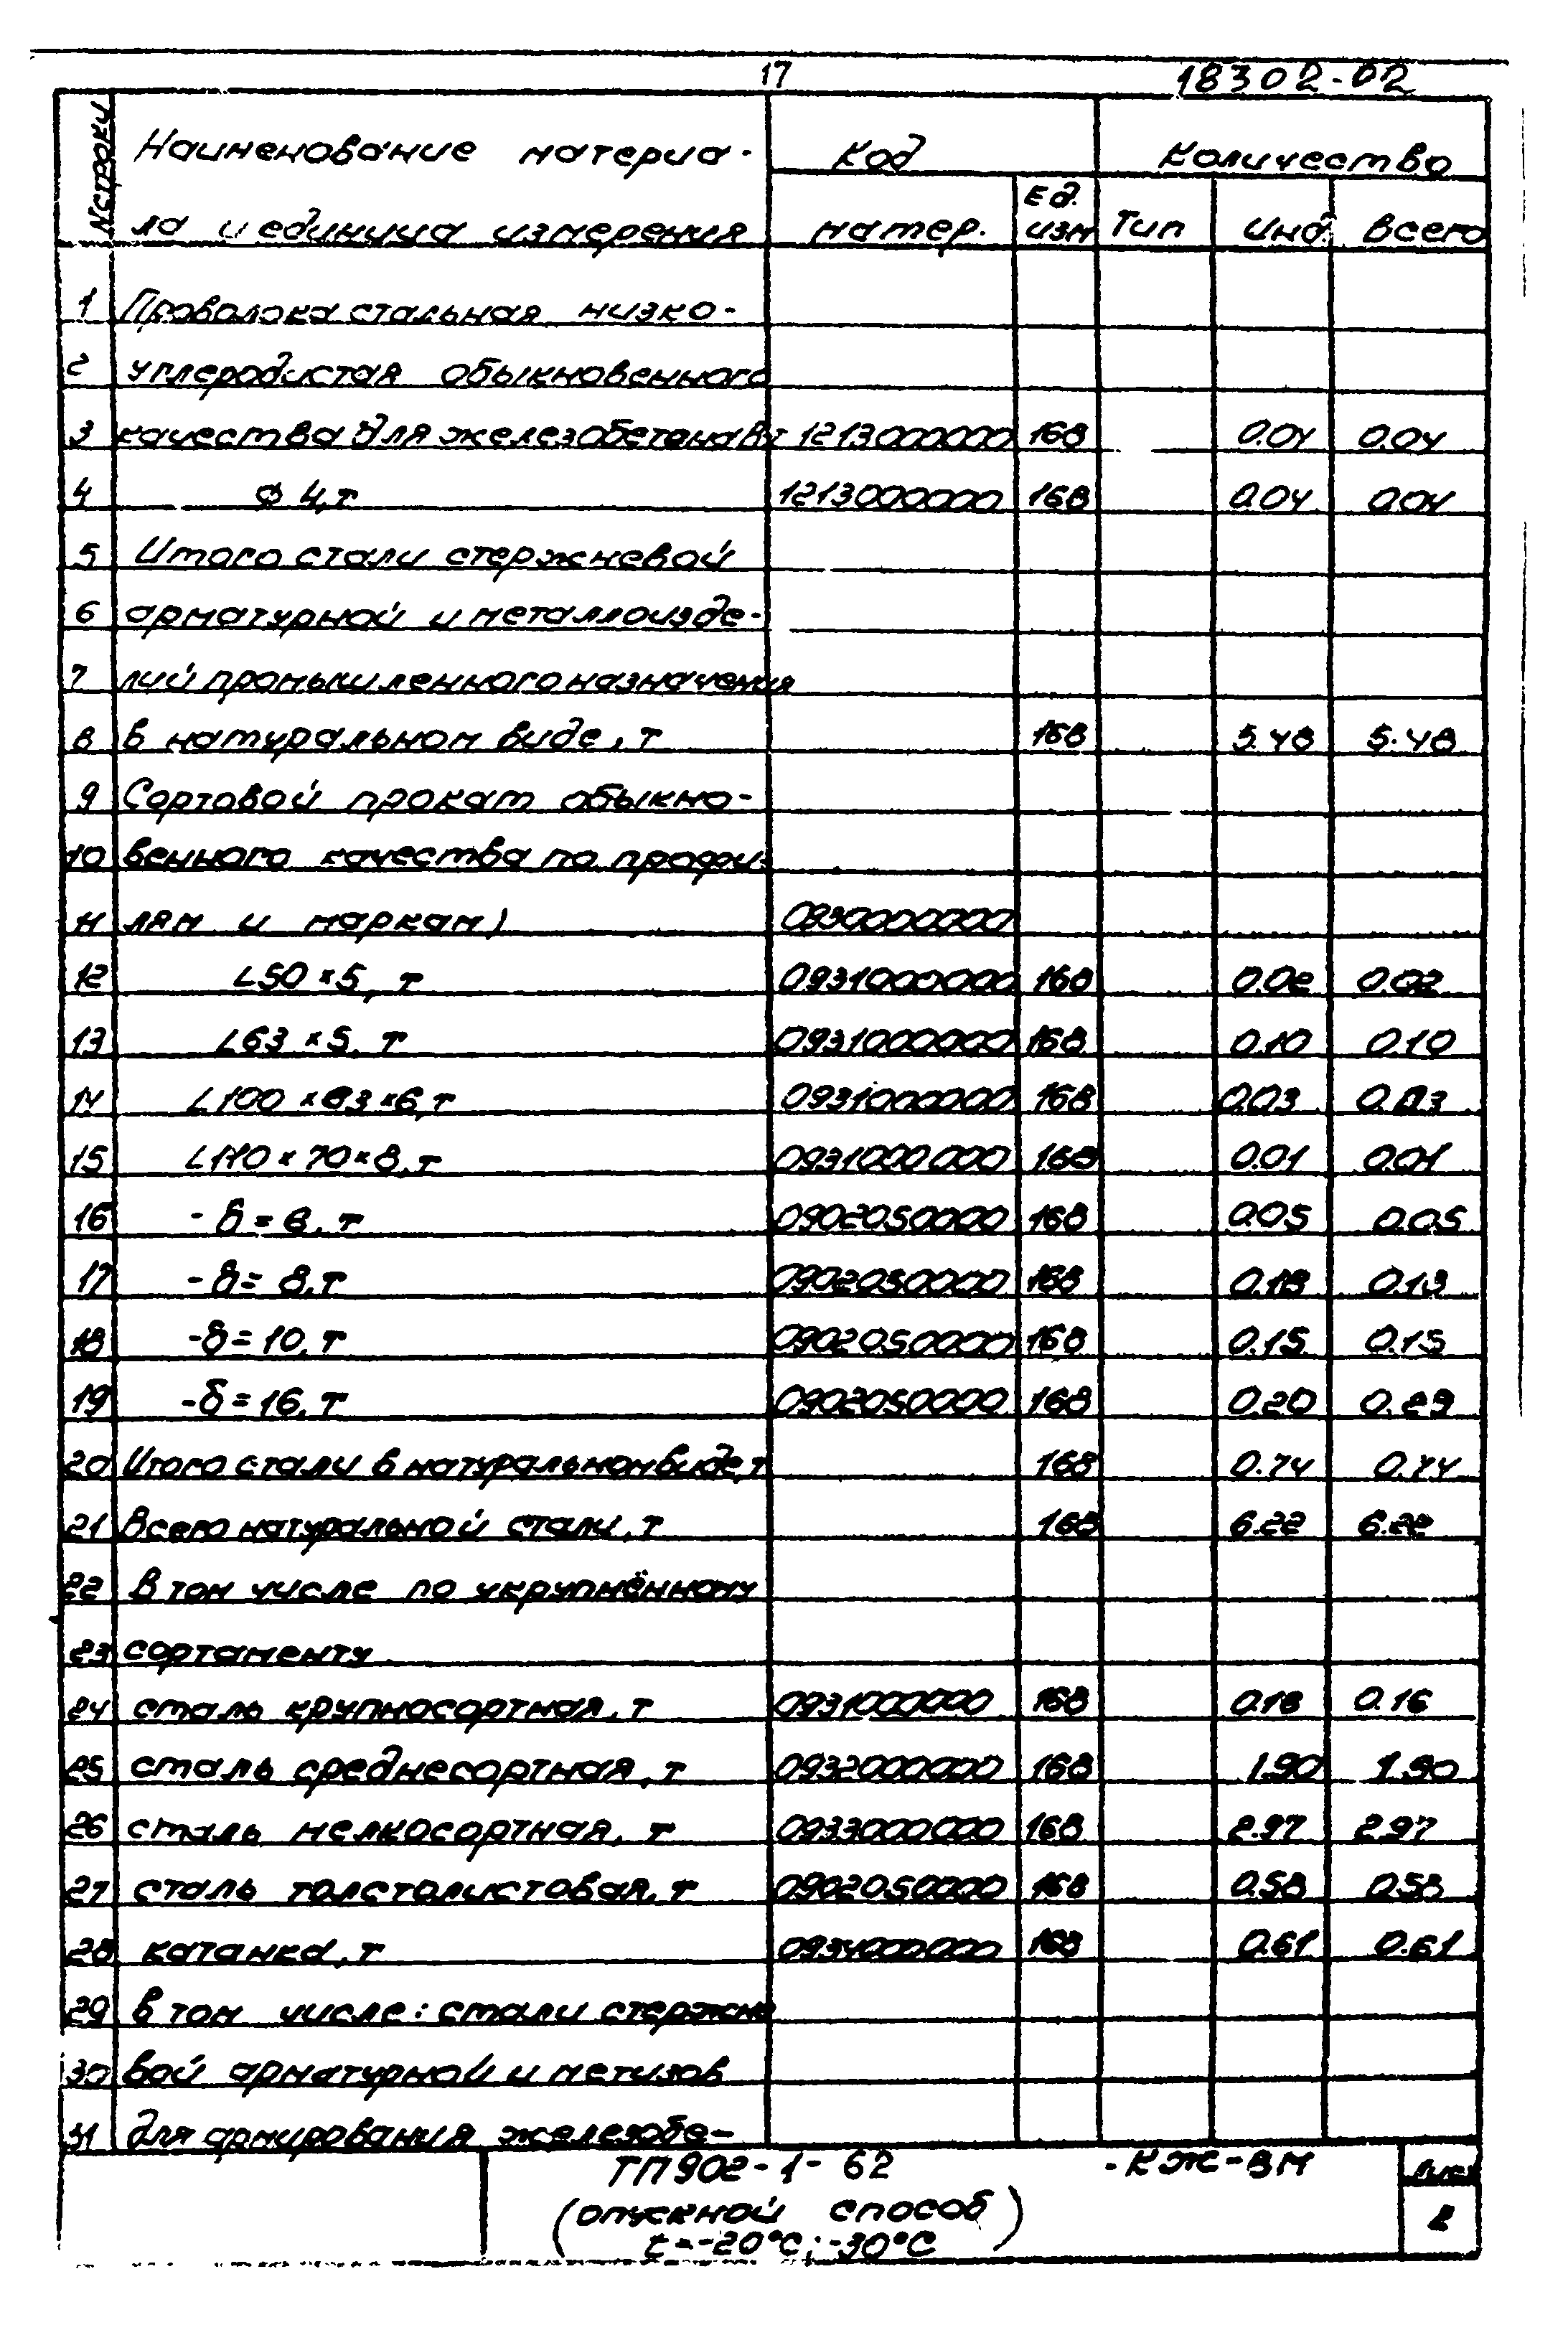 17 18302-02
№ строки Наименование материа- Код Количество
ла и единица измерения матер. Ед. изм Тип Инд. Всего
1 Проволока стальная низко-
2 углеродистая обыкновенного
3 качества для железобетона Вт 1213000000 168 0.04 0.04
4 ϕ 4, т 1213000000 168 0.04 0.04
5 Итого стали стержневой
6 арматурной и металлоизде-
7 лий промышленного назначения
8 в натуральном виде, т 168 5.48 5.48
9 Сортовой прокат обыкно-
10 венного качества по профи-
11 лям и маркам) 0930000000
12 ∠50×5, т 0931000000 168 0.02 0.02
13 ∠63×5, т 0931000000 168 0.10 0.10
14 ∠100×63×6, т 0931000000 168 0.03 0.03
15 ∠110×70×8, т 0931000000 168 0.01 0.01
16 -δ=6, т 0902050000 168 0.05 0.05
17 -δ=8, т 0902050000 168 0.18 0.18
18 -δ=10, т 0902050000 168 0.15 0.15
19 -δ=16, т 0902050000 168 0.20 0.29
20 Итого стали в натуральном виде, т 168 0.74 0.74
21 Всего натуральной стали, т 168 6.22 6.22
22 в том числе по укрупнённому
23 сортаменту
24 сталь крупносортная, т 0931000000 168 0.16 0.16
25 сталь среднесортная, т 0932000000 168 1.90 1.90
26 сталь мелкосортная, т 0933000000 168 2.97 2.97
27 сталь толстолистовая, т 0902050000 168 0.58 0.58
28 катанка, т 0934000000 168 0.61 0.61
29 в том числе: стали стержне
30 вой арматурной и метизов
31 для армирования железобе-
ТП 902-1-62 -КЖ-ВМ Лист
(опускной способ) 2
t=-20°C; -30°C